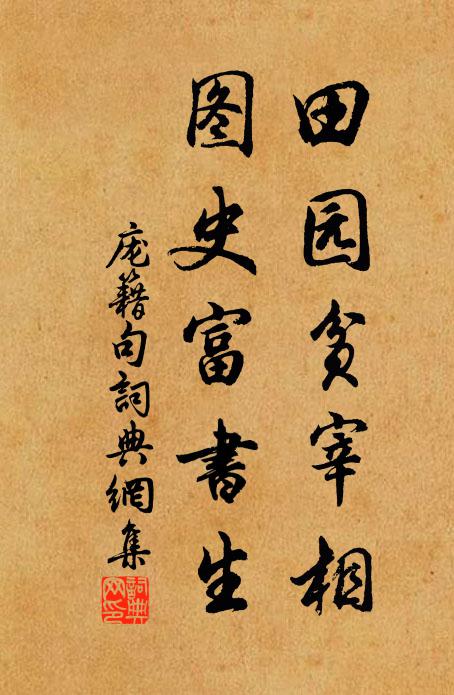 田园贫宰相
图史富書生
庞籍句詞典網集
詞典网印